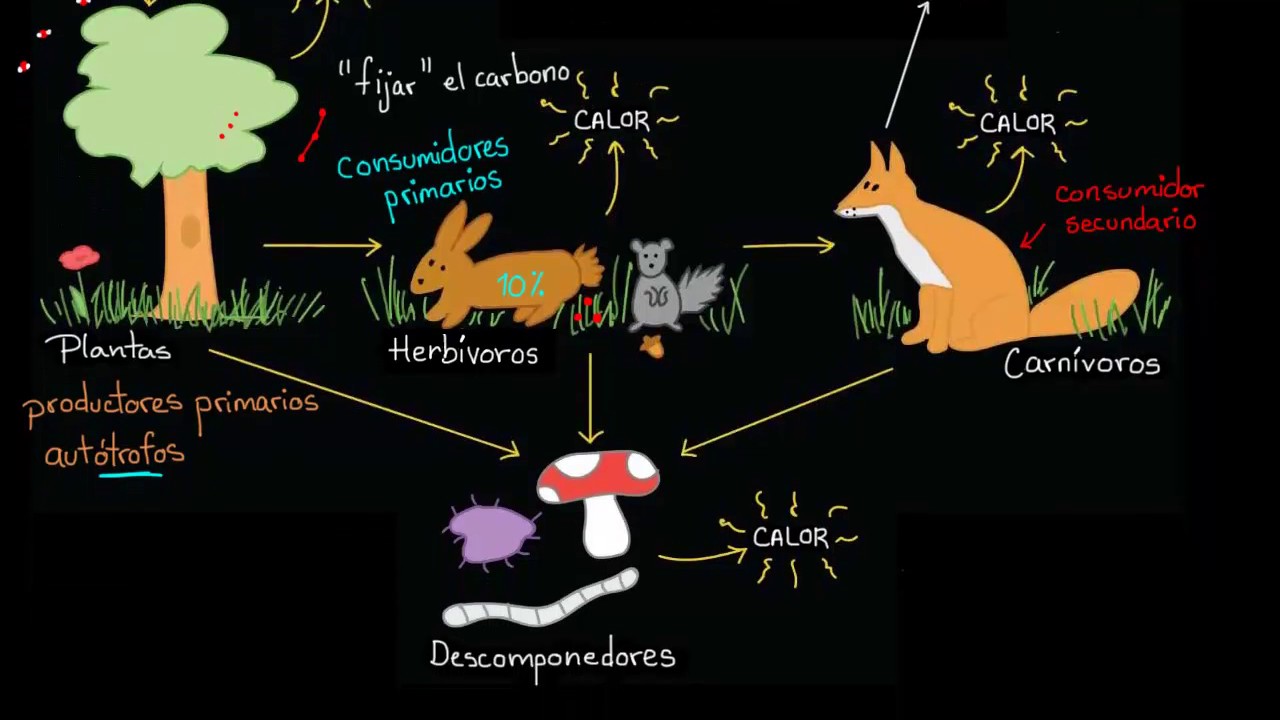 "fijar" el carbono
CALOR
CALOR
consumidores
primarios
consumidor
secundario
10%
Plantas
Herbívoros
Carnívoros
productores primarios
autótrofos
CALOR
Descomponedores